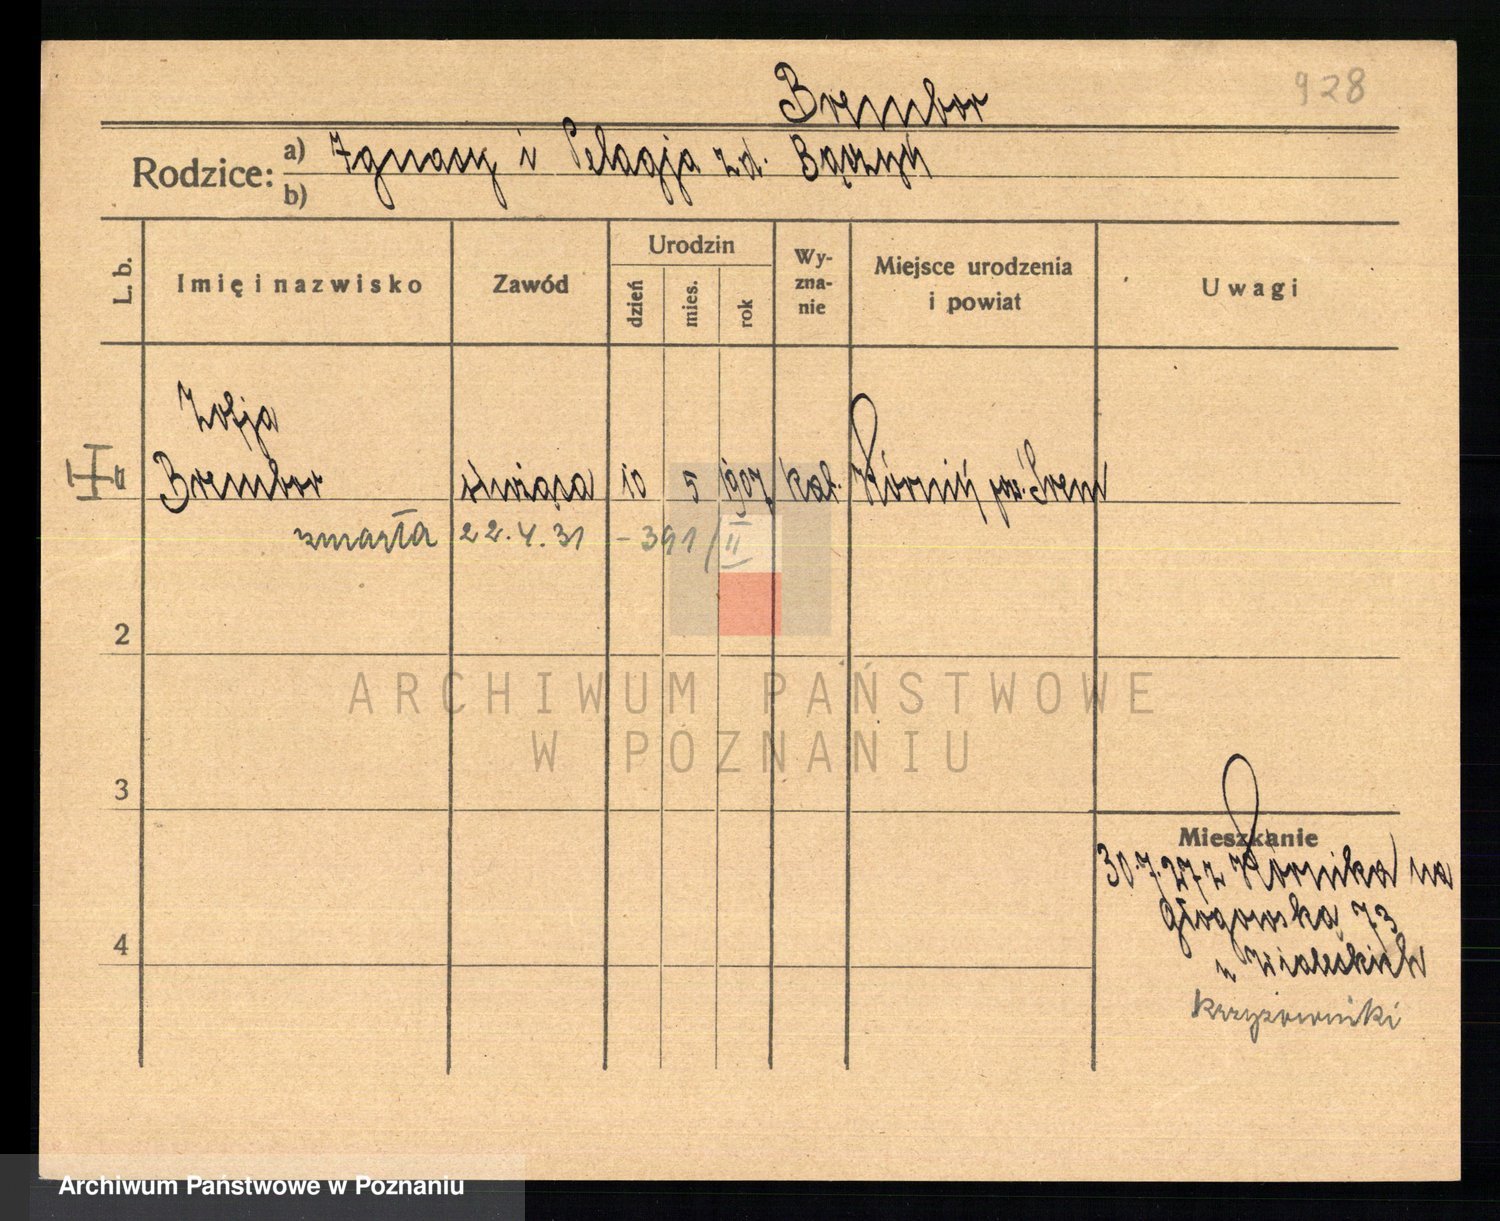 928
Brembor
Rodzice: a) Ignacy i Pelagja zd. Bączyń
b)
L. b.
Imię i nazwisko
Zawód
Urodzin
dzień
mies.
rok
Wy-
zna-
nie
Miejsce urodzenia
i powiat
Uwagi
Zofja
Brembor służąca 10 5 1907 kat. Kórnik pow. Śrem
zmarła 22.4.31 - 391/II
2
3
4
ARCHIWUM PAŃSTWOWE
W POZNANIU
Mieszkanie
30.7.27 z Kórnika na
Głogowską 73
u
Krzyżowniki
Archiwum Państwowe w Poznaniu